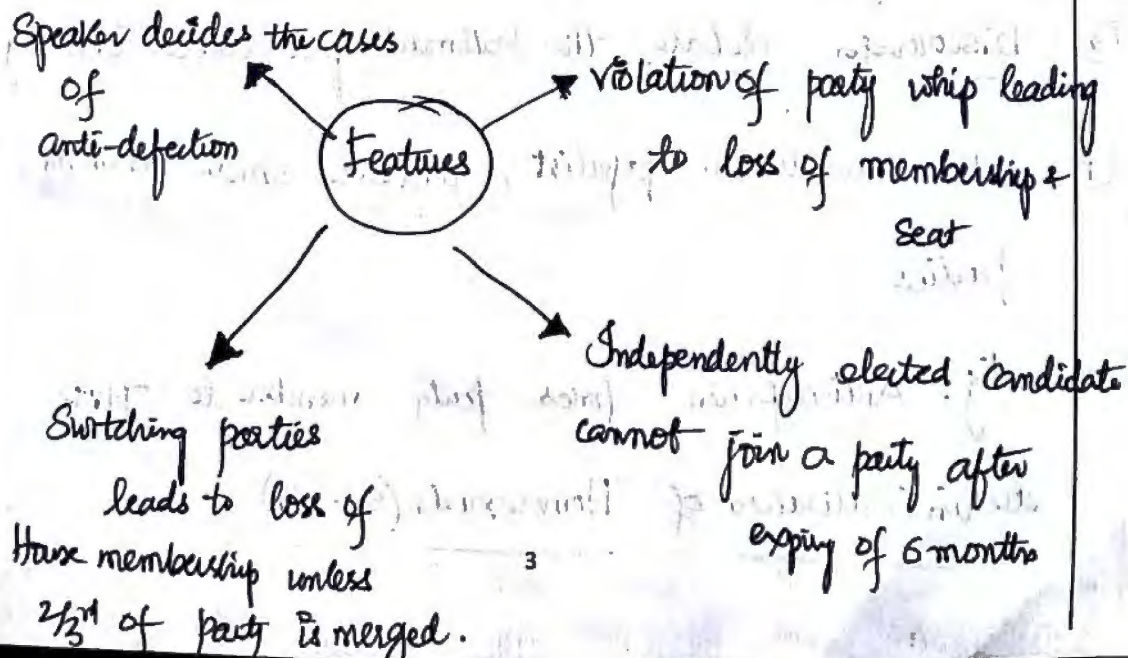 Speaker decides the cases
of
anti-defection
Features
Violation of party whip leading
to loss of membership &
seat
Switching parties
leads to loss of
House membership unless
2/3rd of party is merged.
Independently elected candidate
cannot join a party after
expiry of 6 months
3